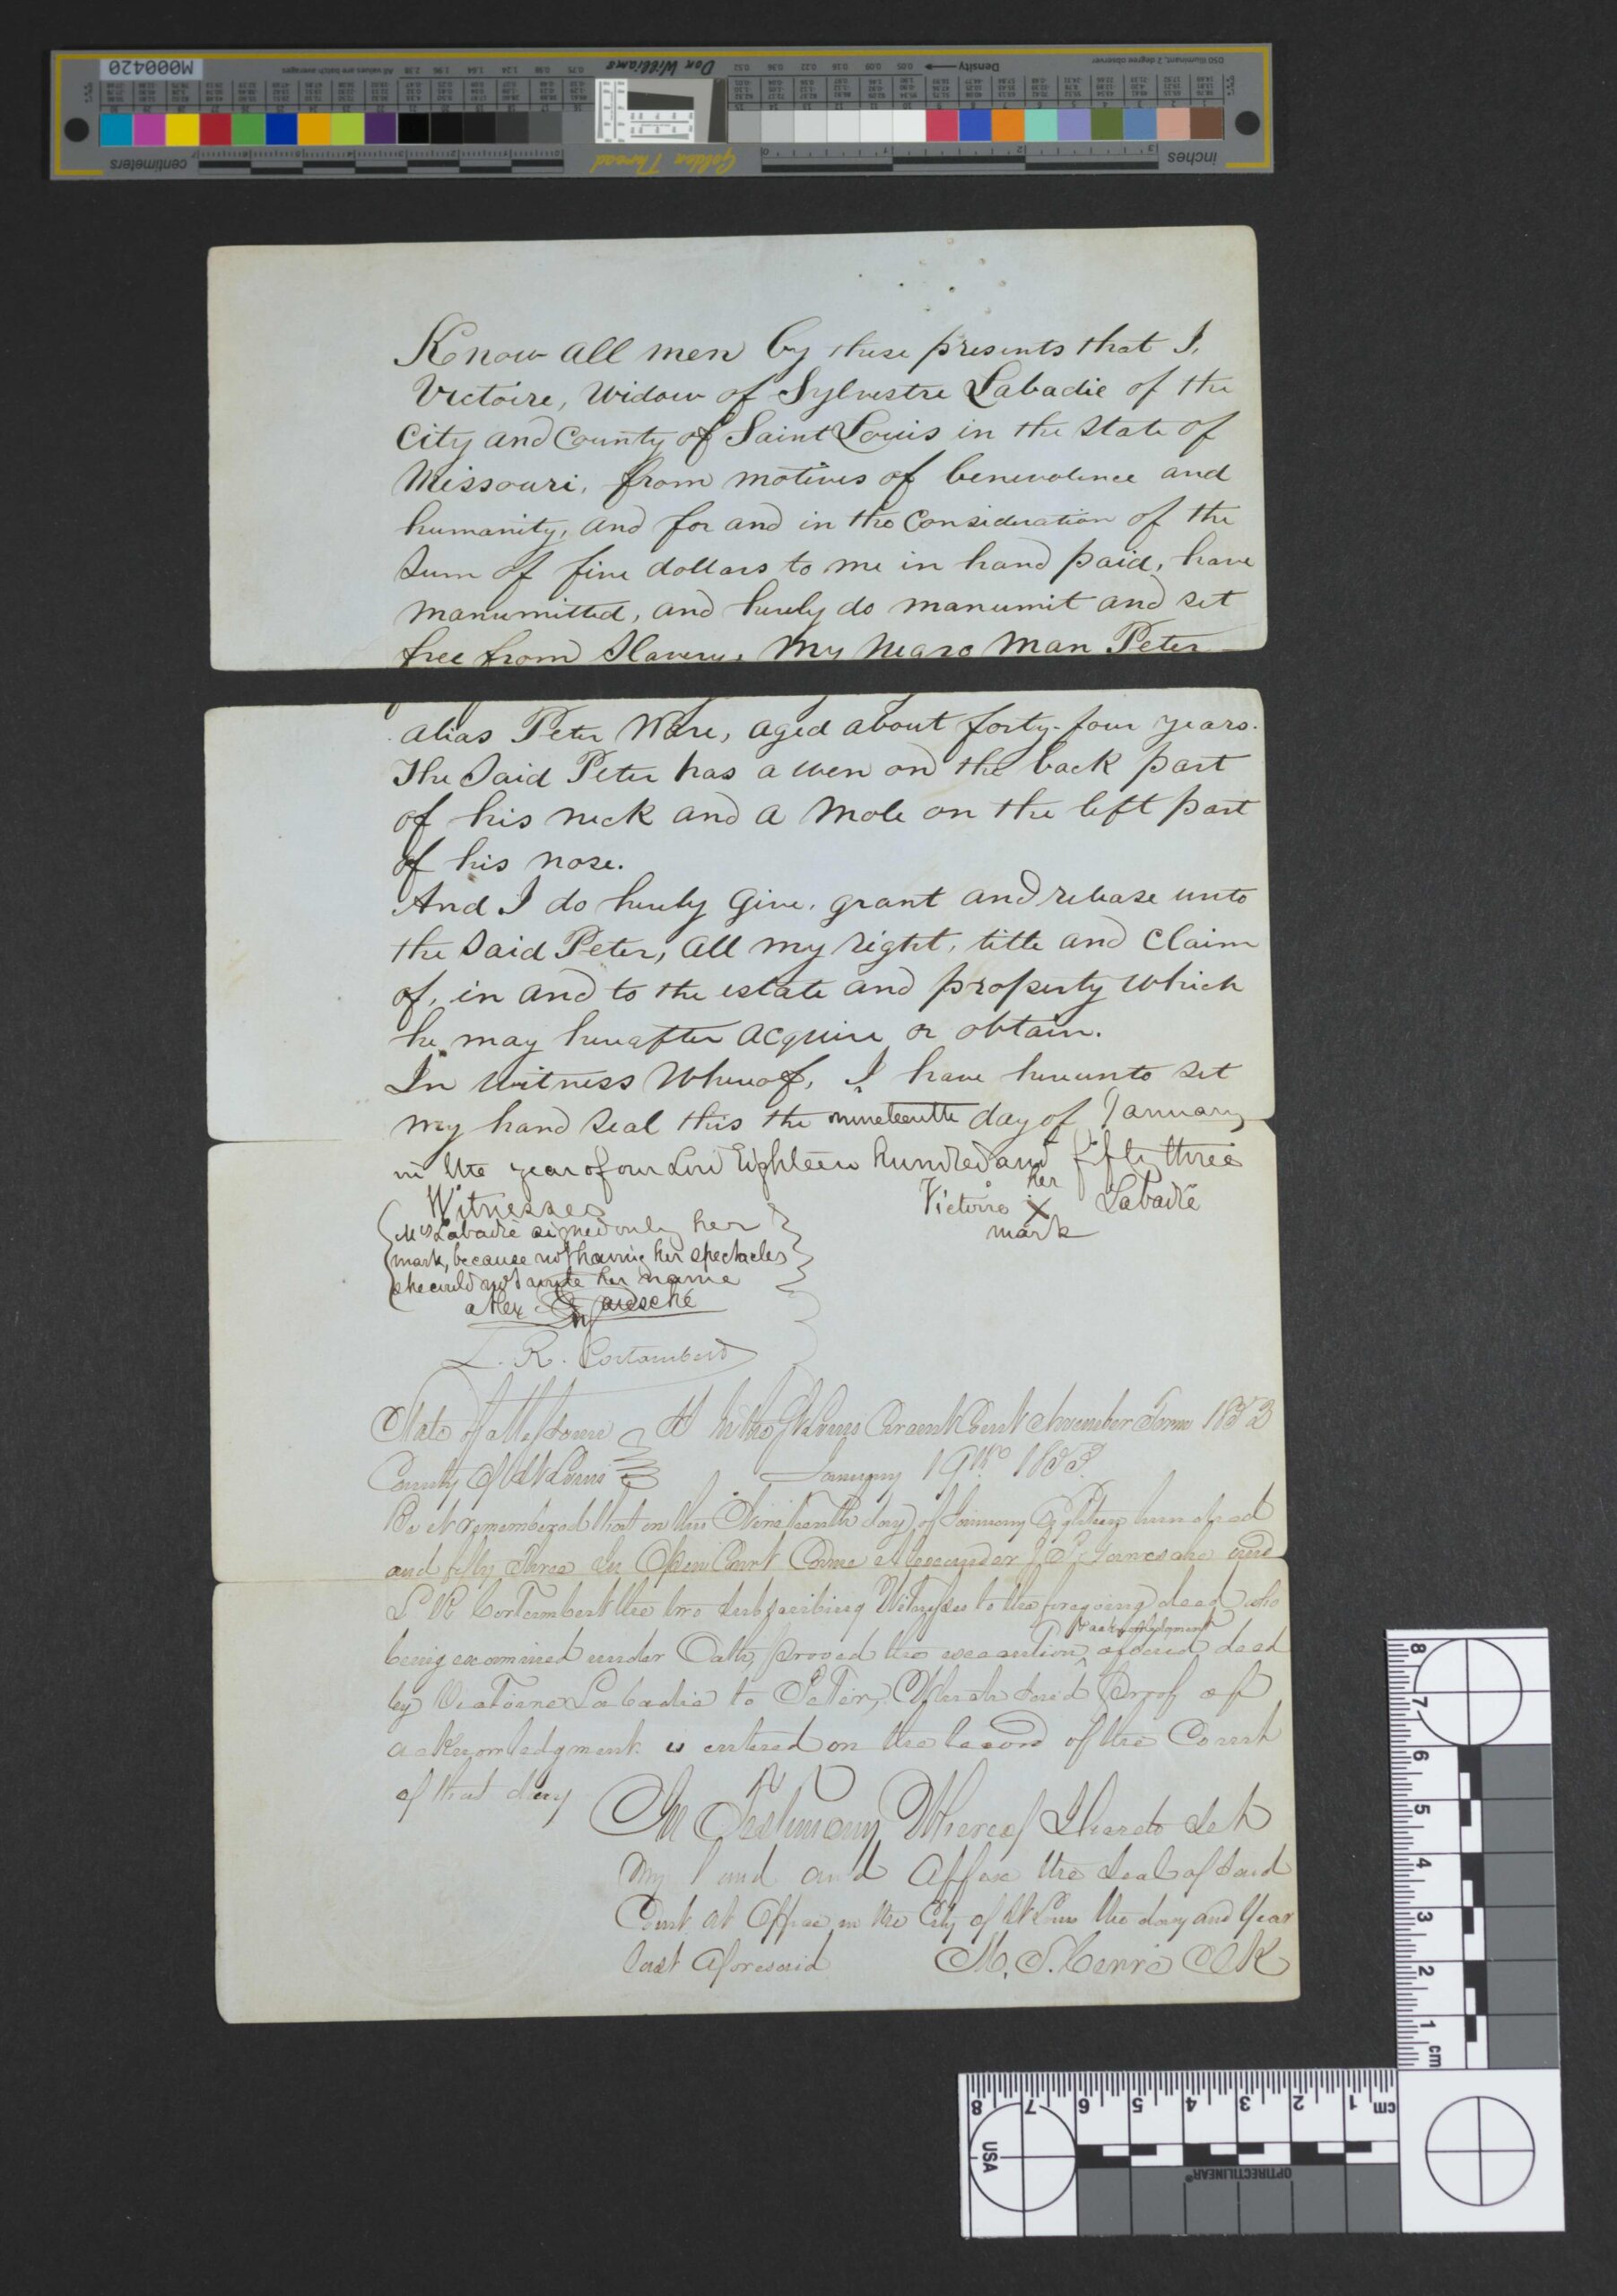 M000420
All values are batch averages
Don Williams
Density
D50 Illuminant, 2 degree observer
centimeters
Golden Thread
inches
Know all men by these presents that I,
Victoire, Widow of Sylvestre Labadie of the
City and County of Saint Louis in the State of
Missouri, from motives of benevolence and
humanity, and for and in the Consideration of the
Sum of five dollars to me in hand paid, have
manumitted, and hereby do manumit and set
free from Slavery, My Negro Man Peter
alias Peter Ware, aged about forty-four years.
The Said Peter has a wen on the back part
of his neck and a Mole on the left part
of his nose.
And I do hereby Give, grant and release unto
the Said Peter, all my right, title and Claim
of, in and to the estate and property Which
he may hereafter acquire or obtain.
In Witness Whereof, I have hereunto set
my hand seal this the nineteenth day of January
in the year of our Lord Eighteen hundred and fifty three
Witnesses
Victoire her X mark Labadie
Mrs Labadie signed only her
mark, because not having her spectacles
she could not write her name
Alex
L. R. Cortambert
State of Missouri In the St Louis Circuit Court November Term 1852
County of St Louis January 19th 1853.
Be it remembered that on this Nineteenth day of January Eighteen hundred
and fifty three In Open Court Came Alexander J. P. Garesche and
L R Cortambert the two Subscribing Witnesses to the foregoing deed who
being examined under Oath, proved the execution & acknowledgment of said deed
by Victoire Labadie to Peter, Which said Proof of
acknowledgment is entered on the record of the Court
of that day
In Testimony Whereof I hereto set
my hand and Affix the Seal of said
Court at Office in the City of St Louis the day and Year
last Aforesaid M. S. Cerré Clk
8 7 6 5 4 3 2 1 cm
8 7 6 5 4 3 2 1 cm
USA
OPTIRECTILINEAR®